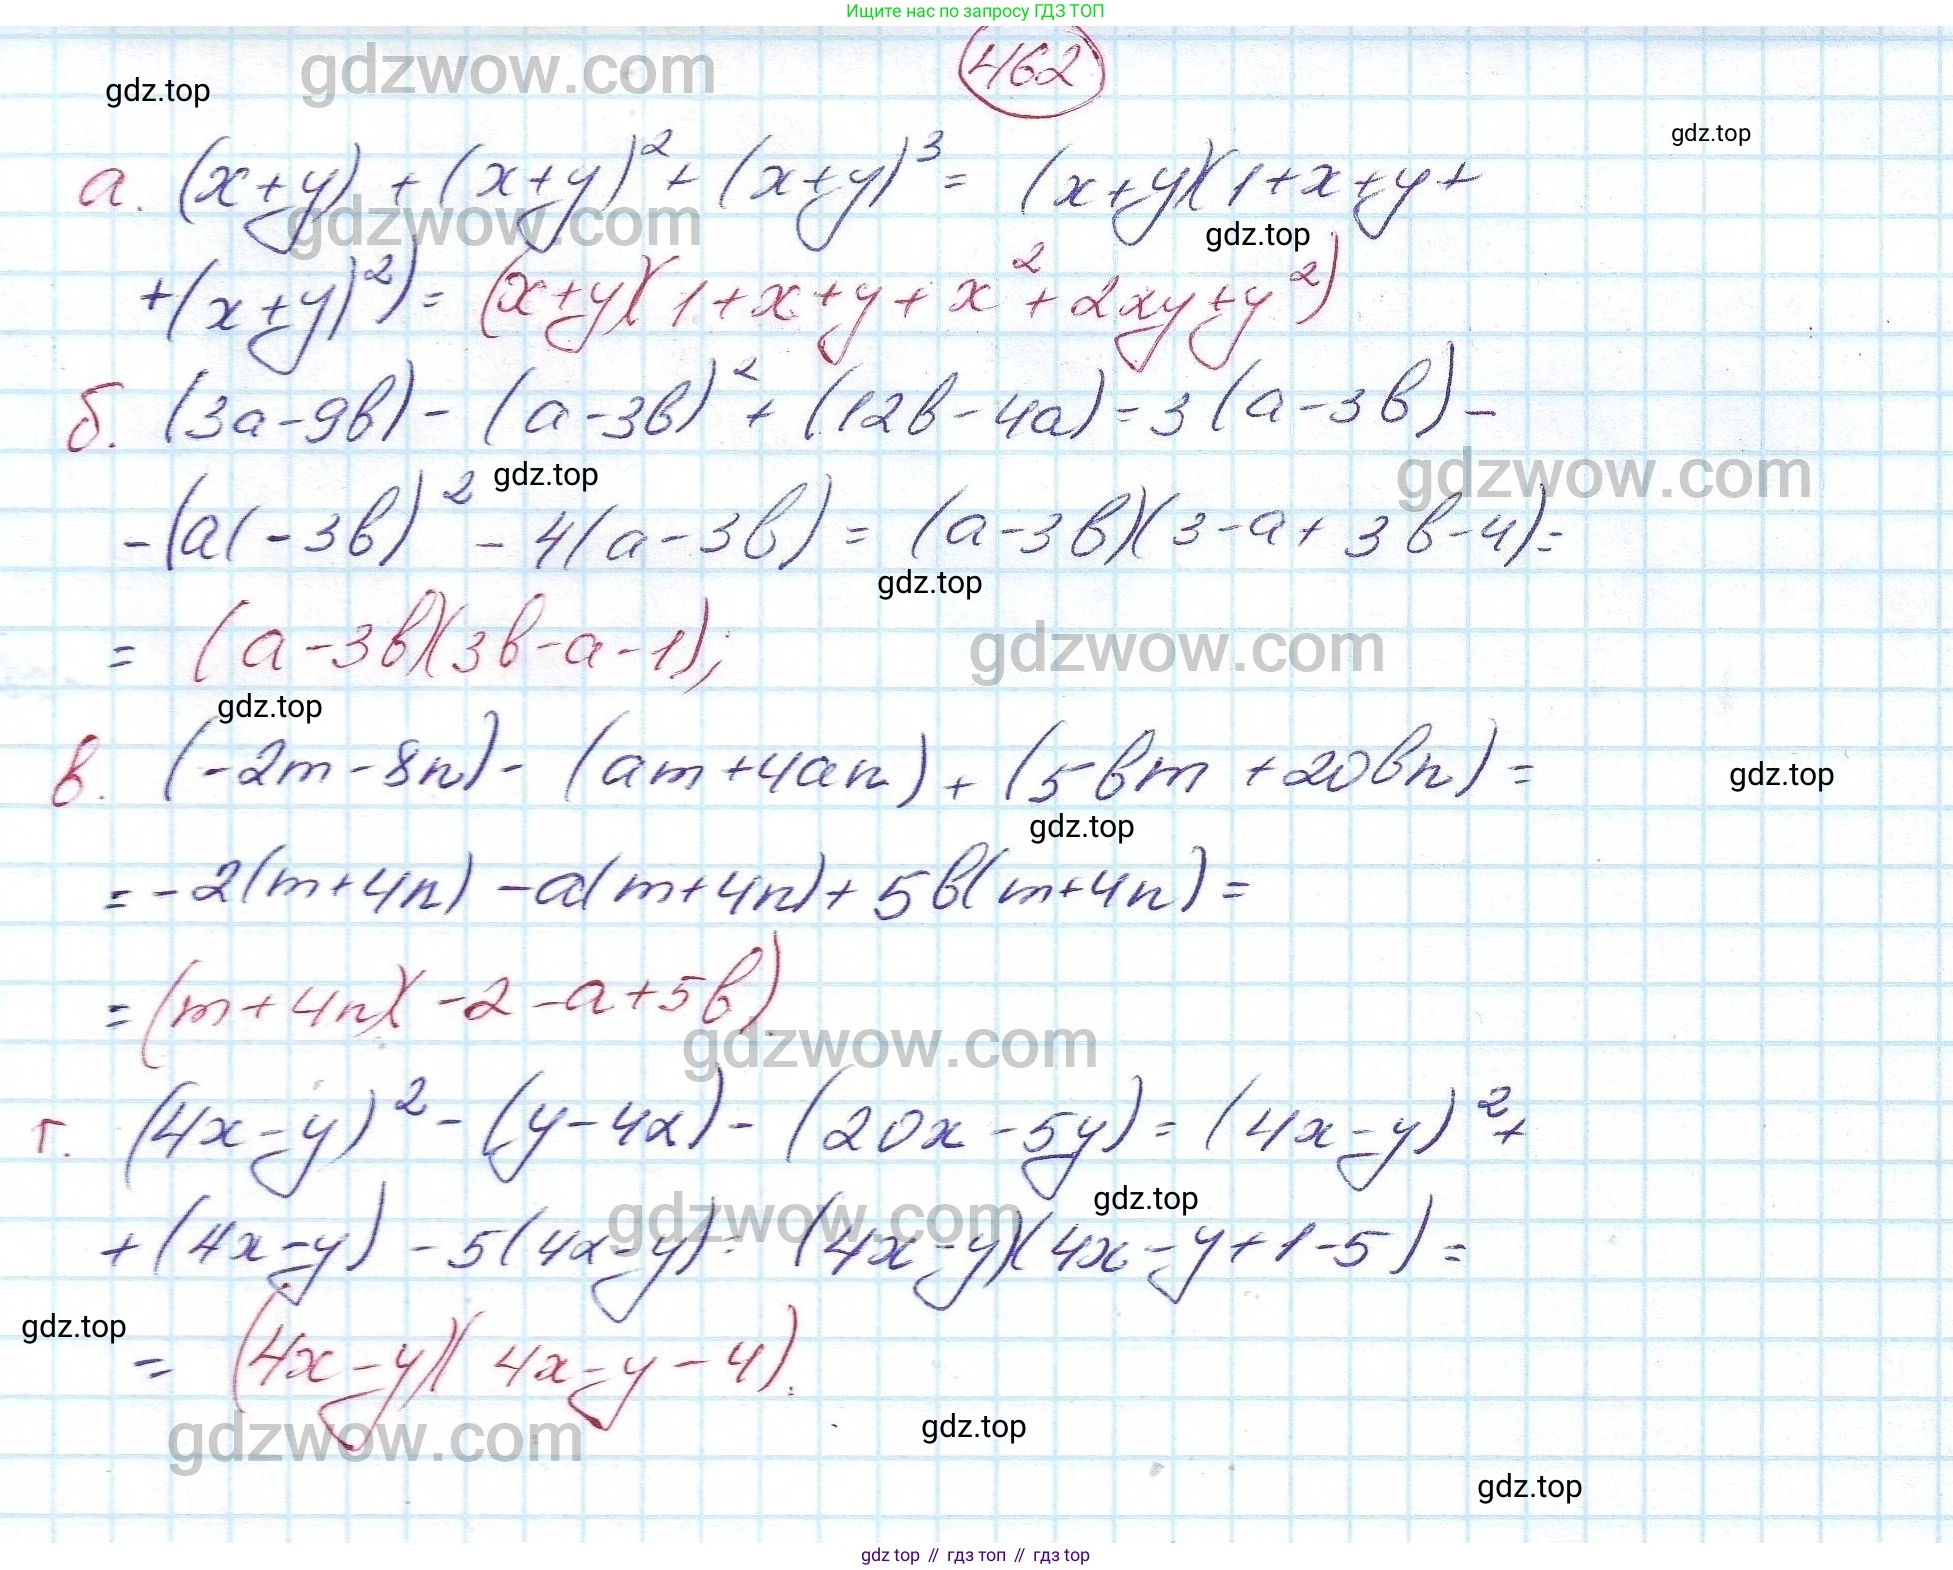 Ищите нас по запросу ГДЗ ТОП
462
gdzwow.com
gdz.top
gdz.top
а. (x+y) + (x+y)² + (x+y)³ = (x+y)(1+x+y+
gdzwow.com
gdz.top
+(x+y)²) = (x+y)(1+x+y+x²+2xy+y²)
б. (3a-9b) - (a-3b)² + (12b-4a) = 3(a-3b) -
gdzwow.com
gdz.top
-(a(-3b)² - 4(a-3b) = (a-3b)(3-a+3b-4) =
gdz.top
= (a-3b)(3b-a-1);
gdzwow.com
gdz.top
в. (-2m-8n) - (am+4an) + (5bm+20bn) =
gdz.top
gdz.top
= -2(m+4n) - a(m+4n) + 5b(m+4n) =
= (m+4n)(-2-a+5b)
gdzwow.com
г. (4x-y)² - (y-4x) - (20x-5y) = (4x-y)² +
gdz.top
gdzwow.com
+ (4x-y) - 5(4x-y) = (4x-y)(4x-y+1-5) =
gdz.top
= (4x-y)(4x-y-4).
gdzwow.com
gdz.top
gdz.top
gdz top // гдз топ // gdz top